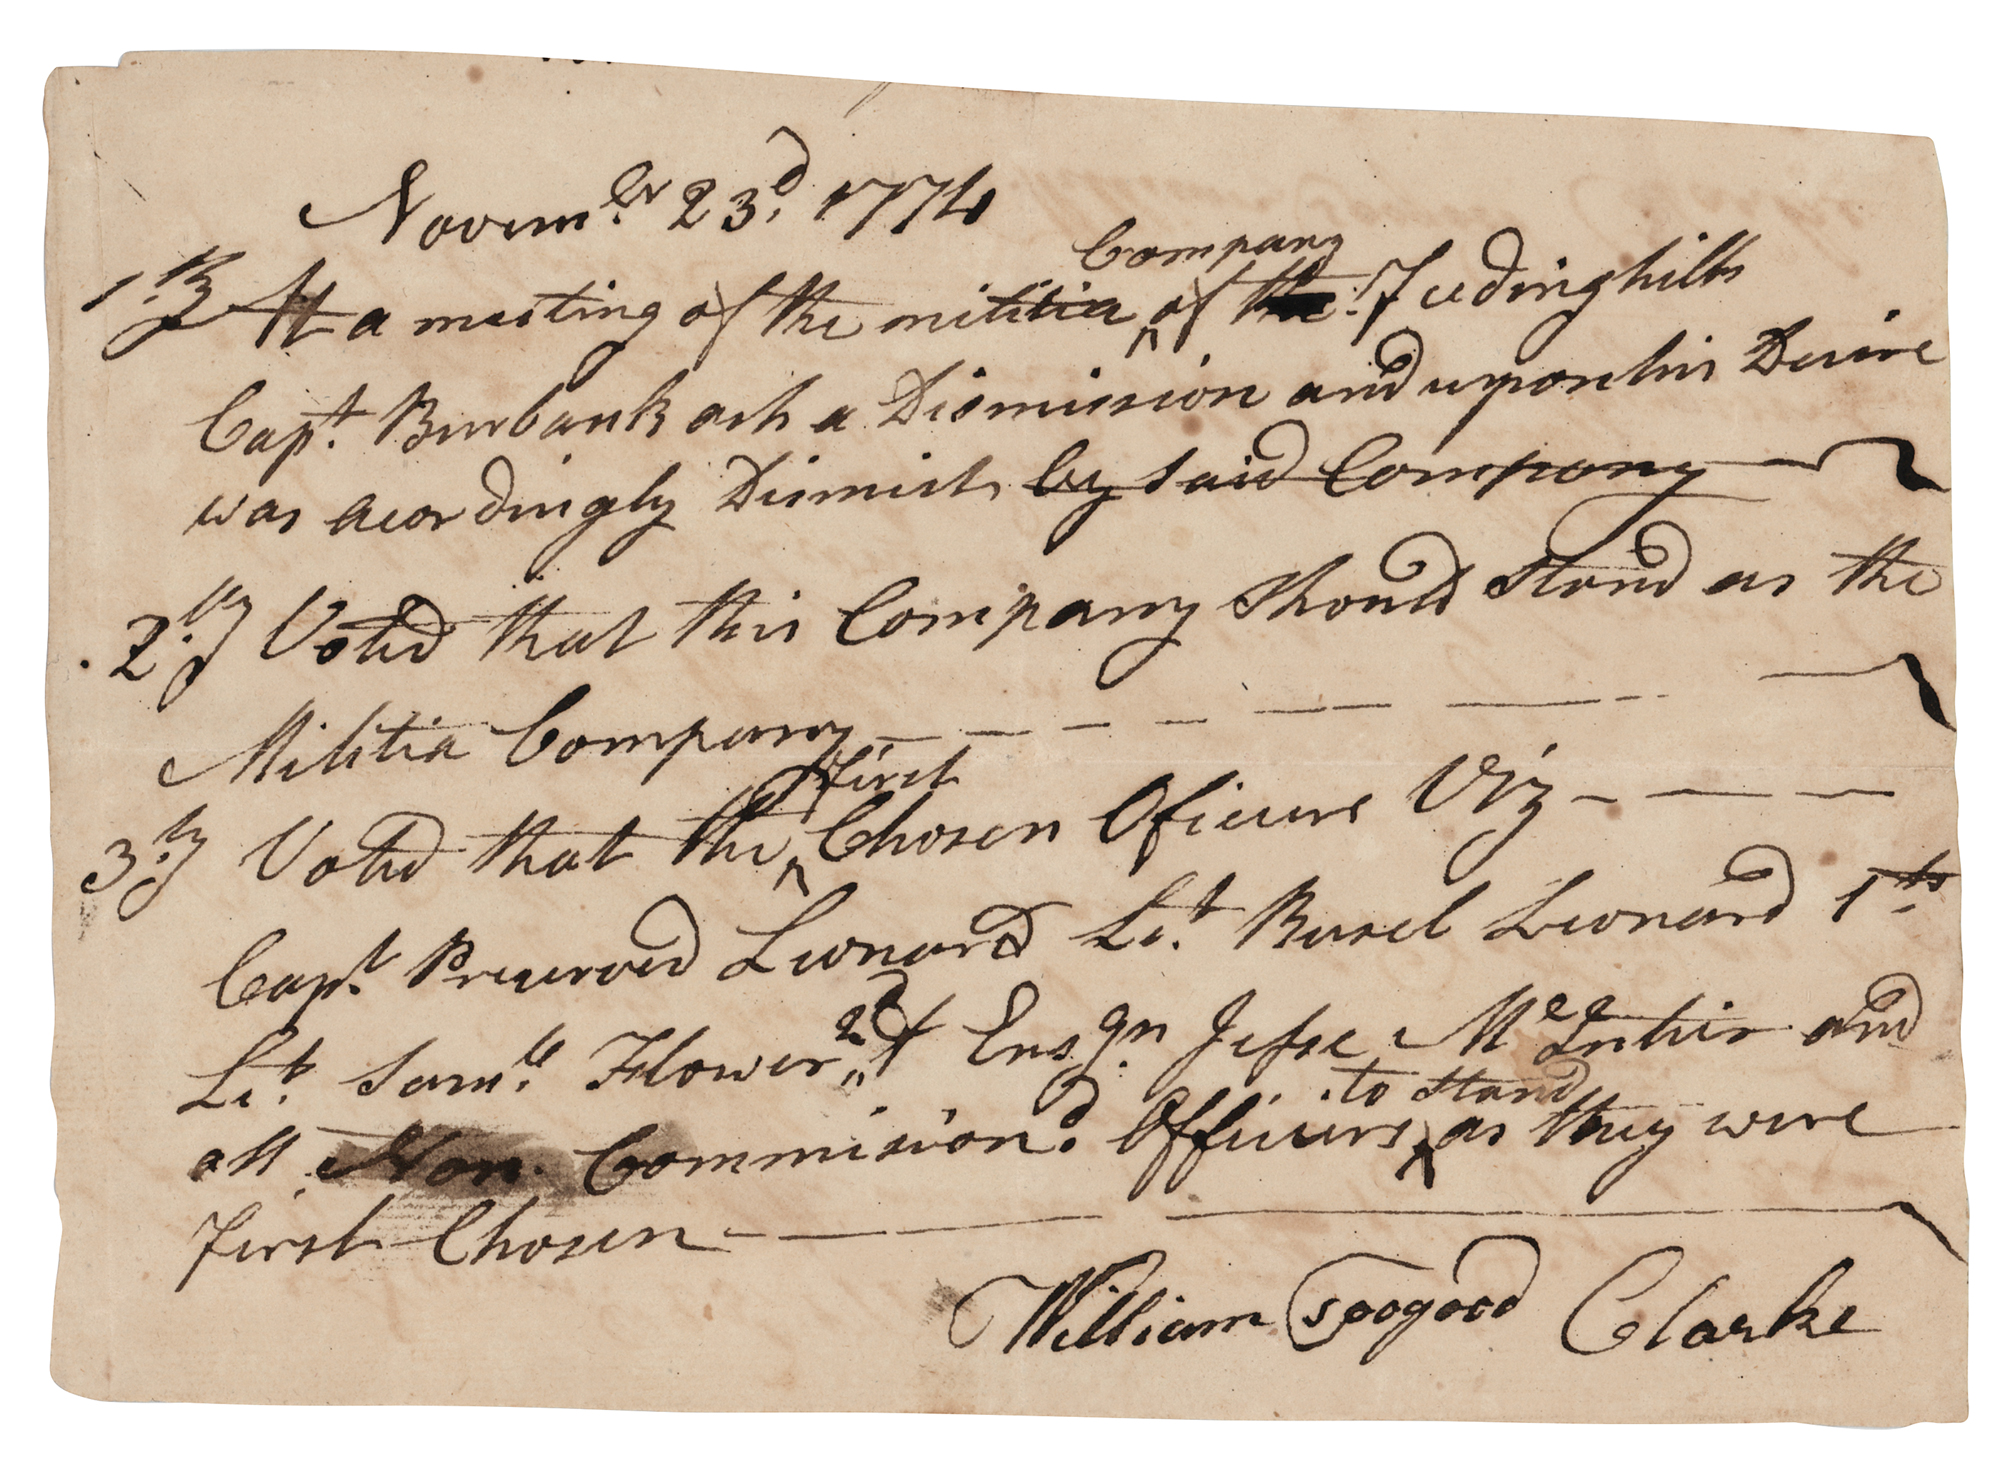 Novem.er 23.d 1774
Company
1.ly At a meeting of the militia of the Feedinghills
Capt. Burbank ask a Dismission and upon his Desire
was acordingly Dismist by said Company
2.ly Voted that this Company Should Stand as the
Militia Company
first
3.ly Voted that the Chosen Oficers Viz
Capt. Preserved Leonard Lt. Rusel Leonard 1st
Lt. Sam.ll Flower 2d Ensgn Jesse Mc Intier and
to stand
all Non. Commission.d Officers as they were
first Chosen
William Scogood Clarke